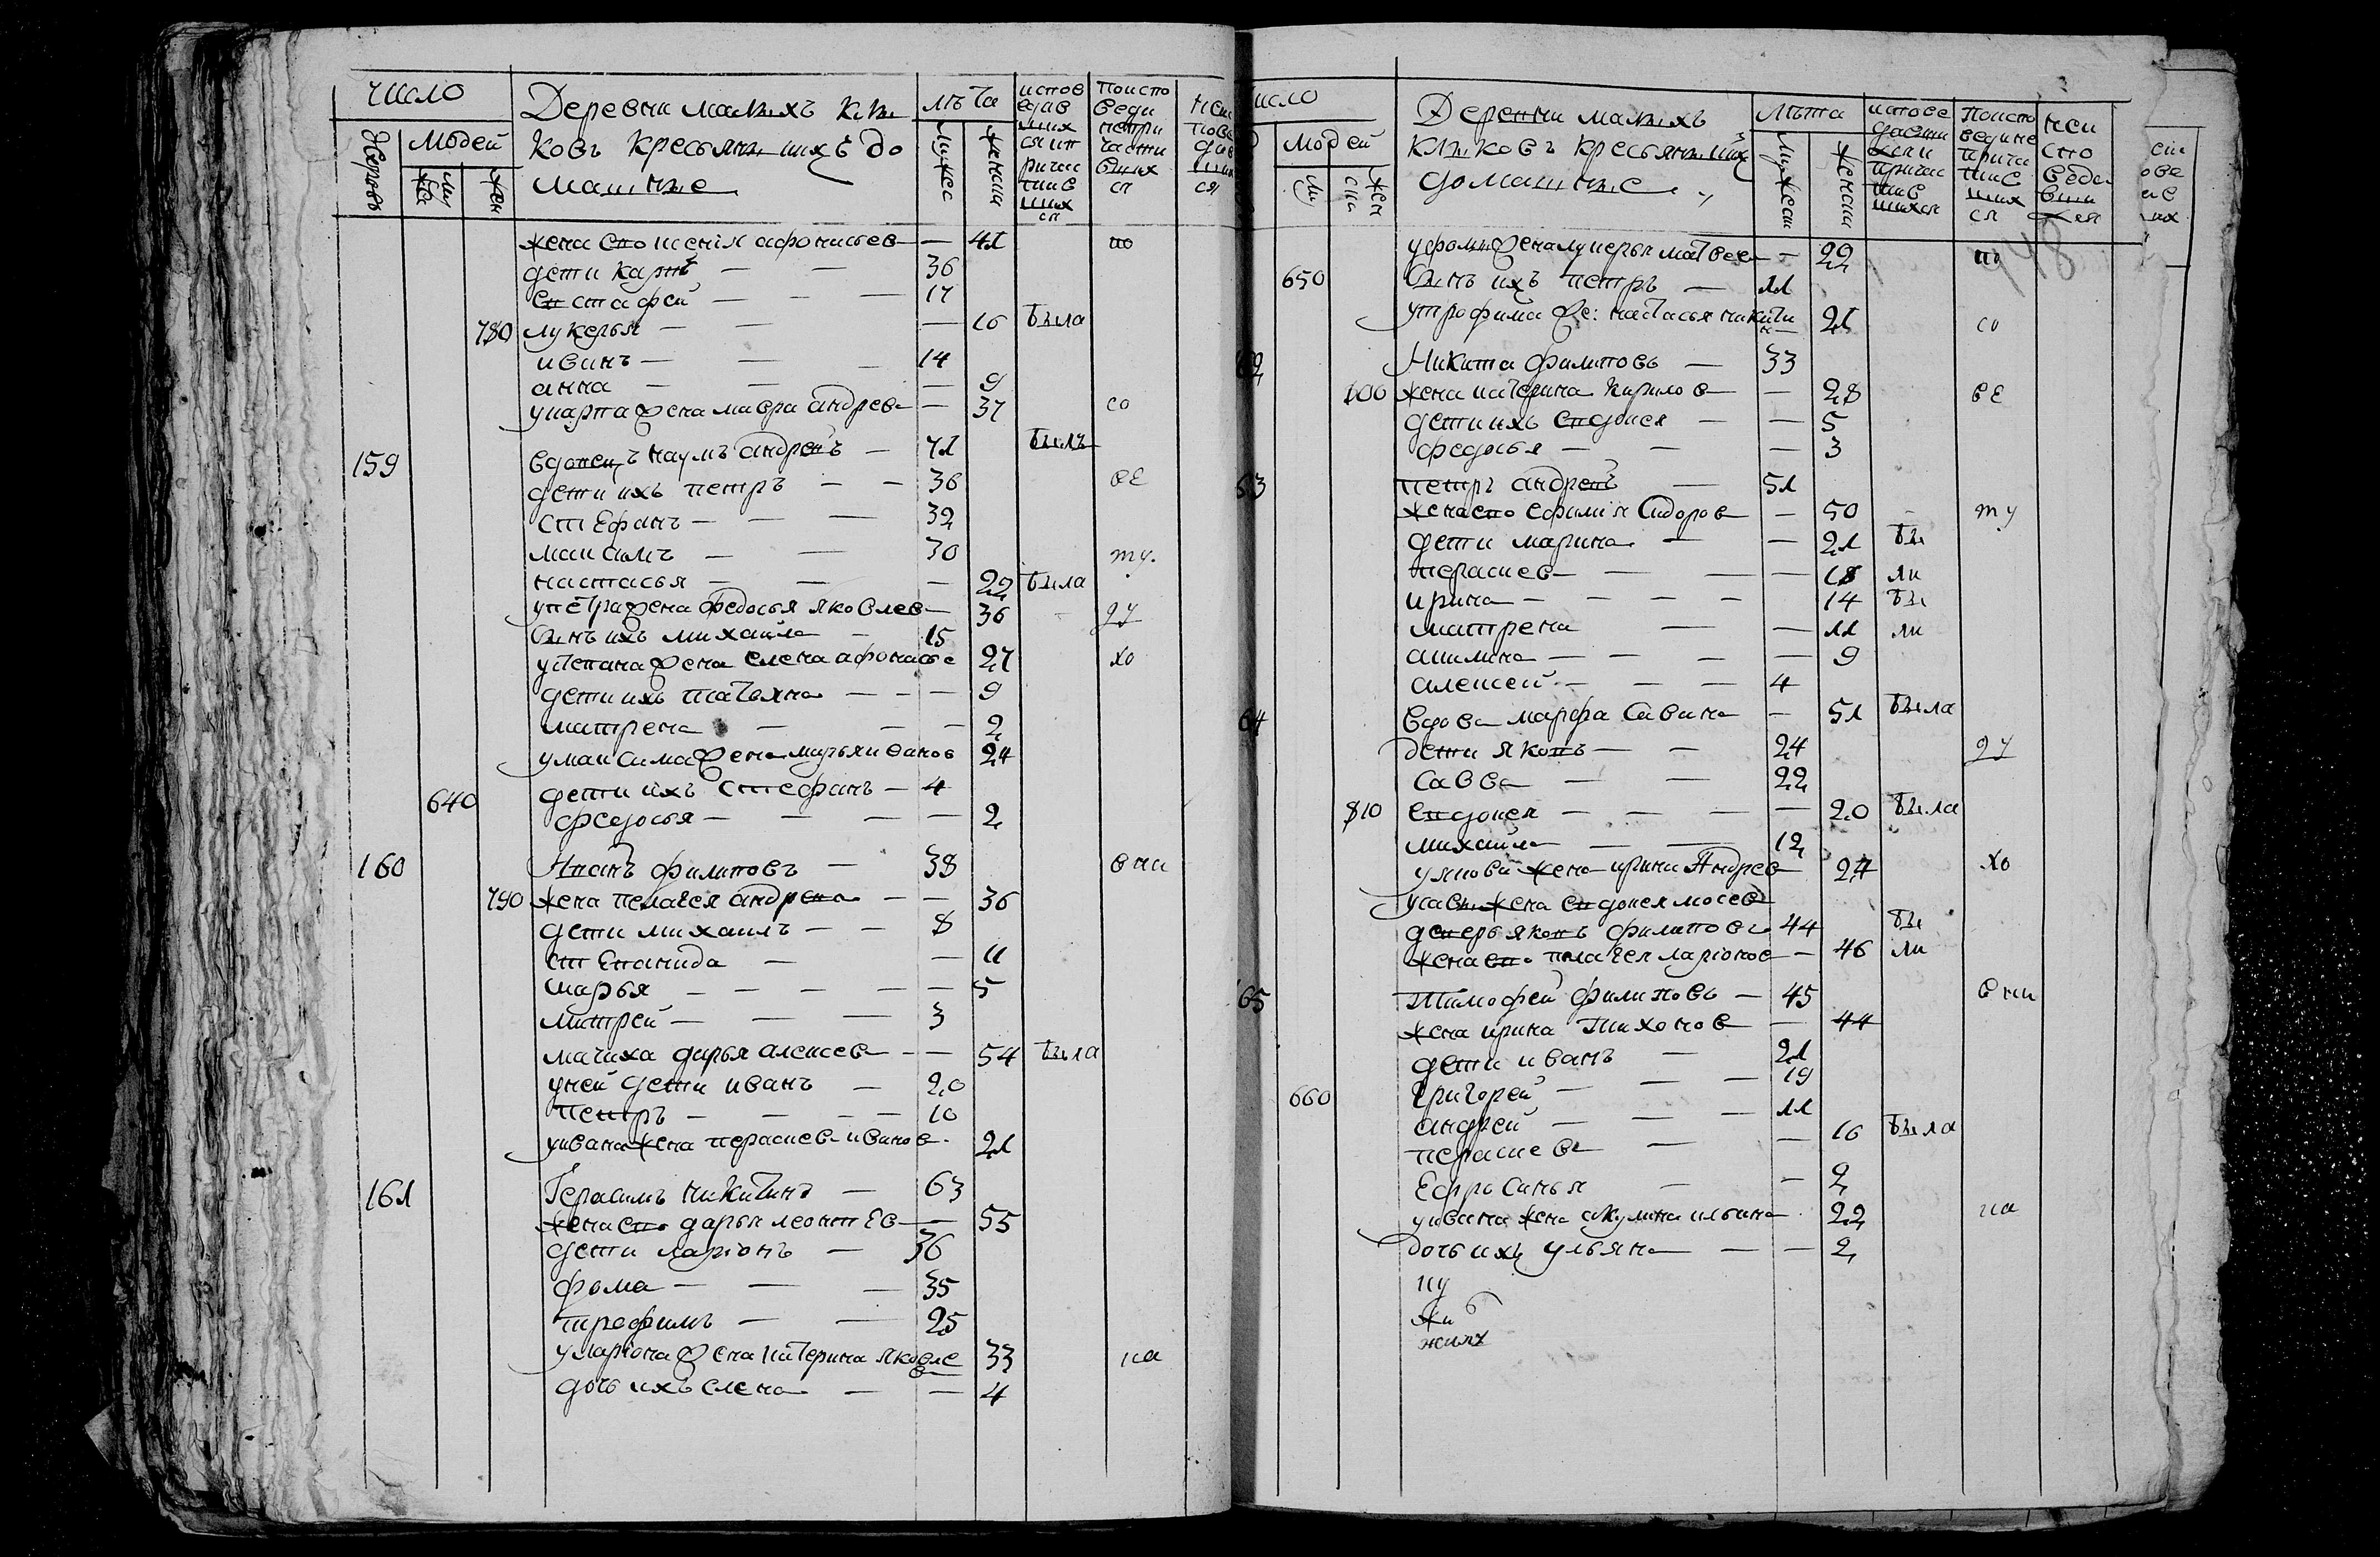 число
Деревни малыхъ клы
лѣта
людей
ковъ крестьяны ихъ до
машные
жена ево ксенїя афонасьев — 41 по
дети карпъ — — 36
евстафей — — — 17
780 лукерья — — — 16 была
иванъ — — — 14
анна — — — 9
укарпа жена мавра андрев — 37 со
159 вдовецъ наумъ андревъ — 71 былъ
дети ихъ петръ — — 36 ве
стефанъ — — — 32
максимъ — — 30 ту.
настасья — — — 22 была
упетра жена федосья яковлев — 36 ду
сынъ ихъ михаила — 15
устепана жена елена афонасье 27 хо
дети ихъ татьяна — — — 9
матрена — — — 2
умаксима жена марья иванов 24
640 дети ихъ стефанъ — 4
федосья — — — — 2
160 Иванъ филиповъ — 38 вни
790 жена пелагея андрева — — 36
дети михаилъ — — 8
степанида — — 11
марья — — — — — 5
митрей — — — 3
мачиха дарья алексев — — 54 была
уней дети иванъ — 20
петръ — — — — 10
уивана жена перасковья иванов 21
161 Герасимъ никитинъ — 63
жена ево дарья леонтев — 55
дети ларїонъ — 36
фома — — — 35
трофимъ — — 25
уларїона жена катерина яковле 33 ка
ва
дочь ихъ елена — — 4
число
Деревни малыхъ
лѣта
людей
клыковъ крестьяны ихъ
домашные
уфомы жена лукерья матвее — 22 въ
650 сынъ ихъ петръ — 11
утрофима же: настасья никити 21 со
н
62 Никита филиповъ — 33
800 жена катерина кирилов — — 28 ве
дети ихъ евдокея — — 5
федосья — — — 3
63 петръ андревъ — 51
жена ево ефимїя сидоров — 50 ту
дети марина — — 21 бы
перасков — — — 18 ли
ирина — — — — 14 бы
матрена — — 11 ли
акилина — — — — 9
алексей — — — 4
64 вдова марфа савина — 51 была
дети яковъ — — 24 ду
савва — — 22
810 евдокея — — — — 20 была
михаила — — 12
уякова жена ирина андрев 24 хо
усавы жена евдокея мосев
деверь яковъ филиповъ 44 бы
жена ево пелагея ларїонов — 46 ли
65 Тимофей филиповъ — 45 вни
жена ирина тихонов — 44
дети иванъ — 21
григорей — — — 19
660 андрей — — — 11
перасков — — 16 была
Ефросинья — — 2
уивана жена акулина ильина 22 ка
дочь ихъ ульяна — — 2